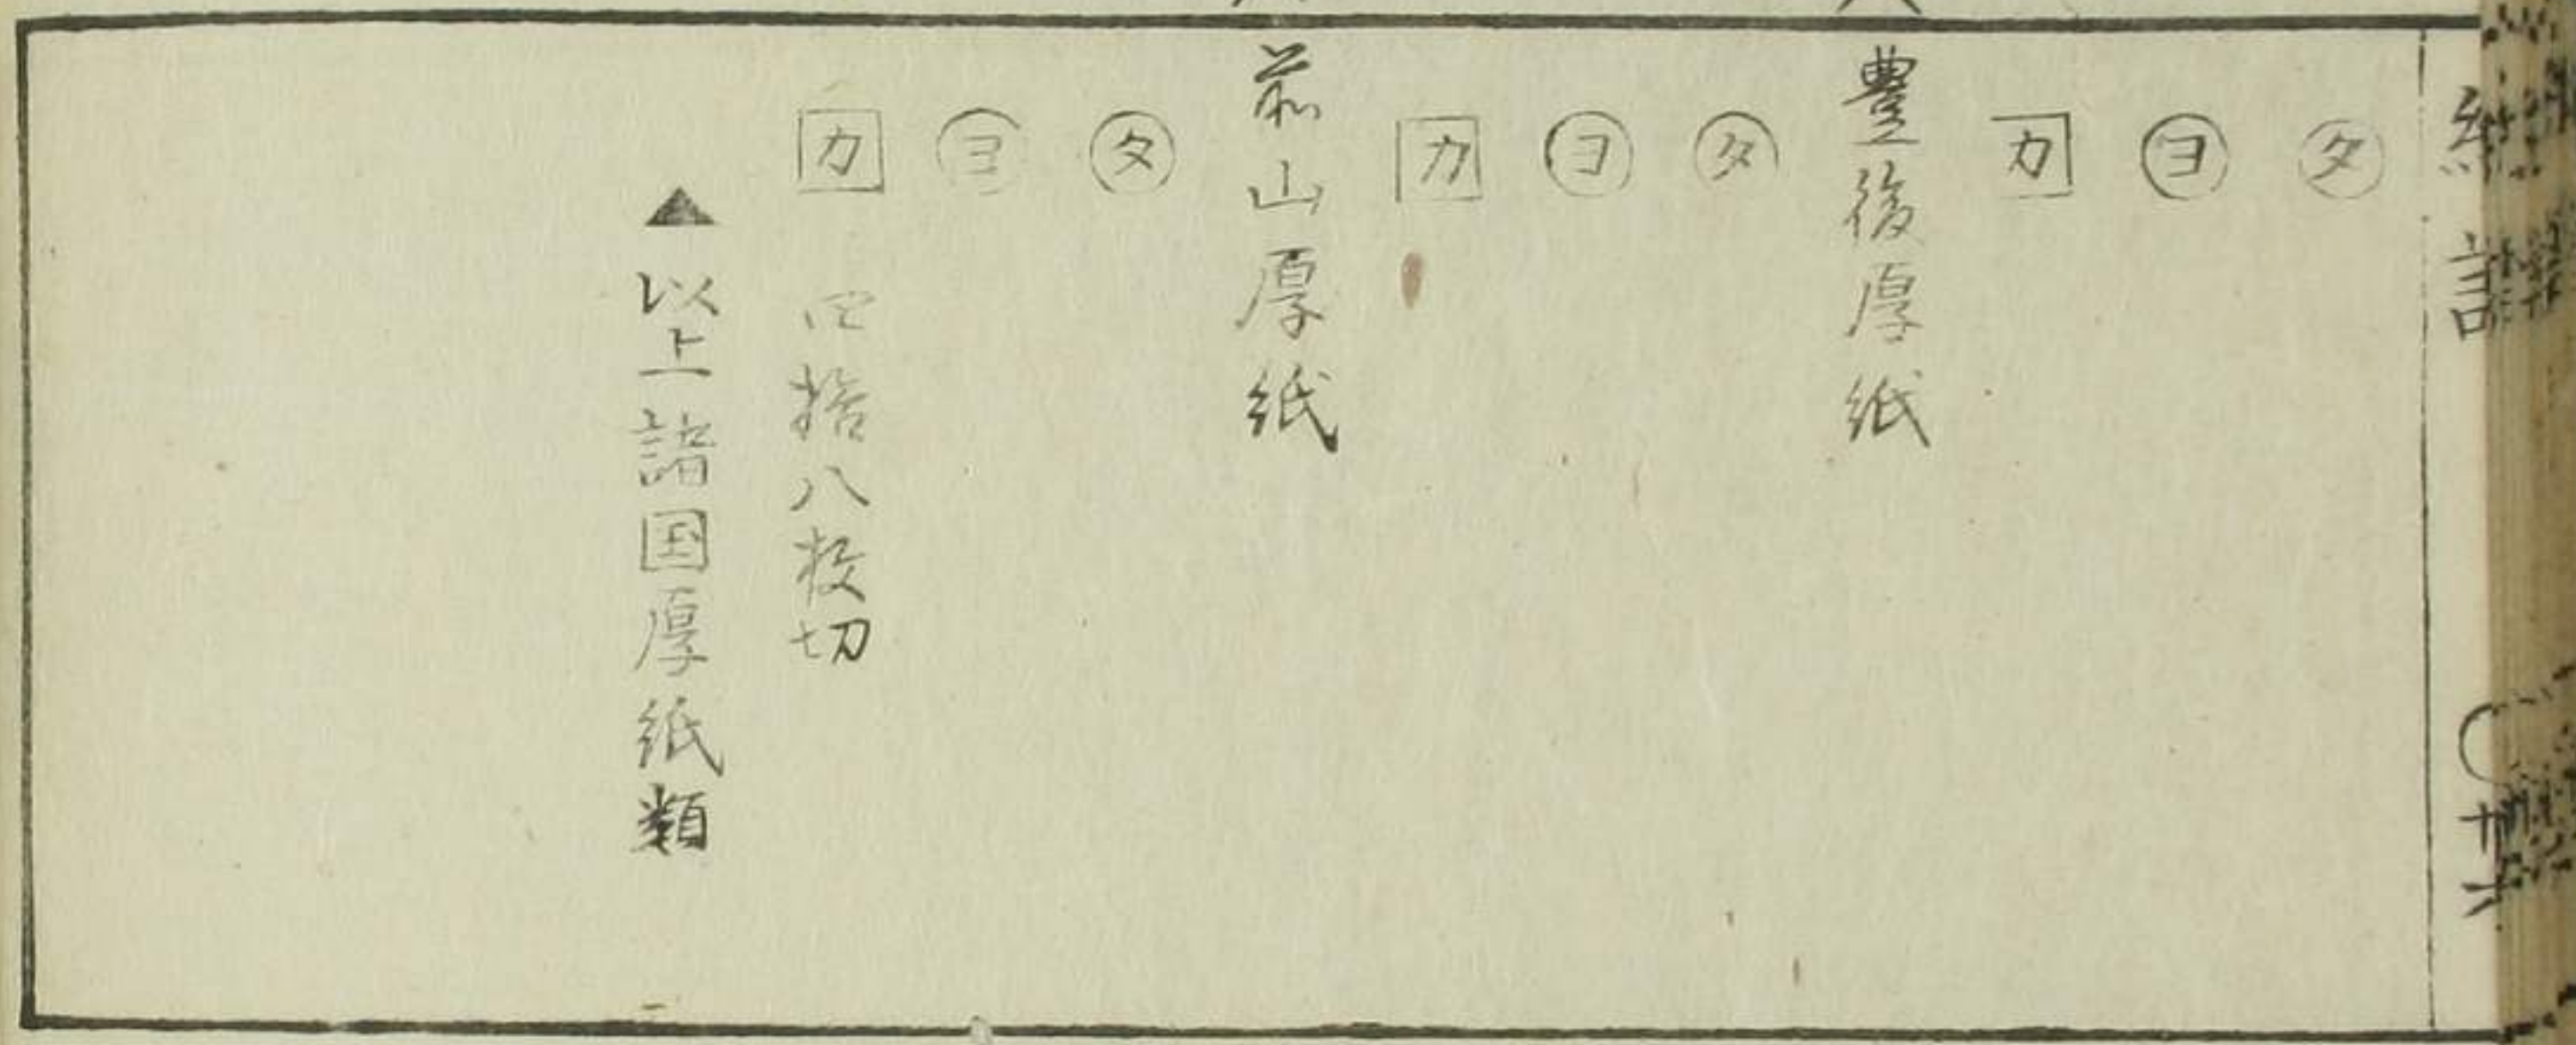 ㋟
㋵
カ
豊後厚紙
㋟
㋵
カ
山厚紙
㋟
㋵
カ 四拾八枚切
▲以上諸国厚紙類